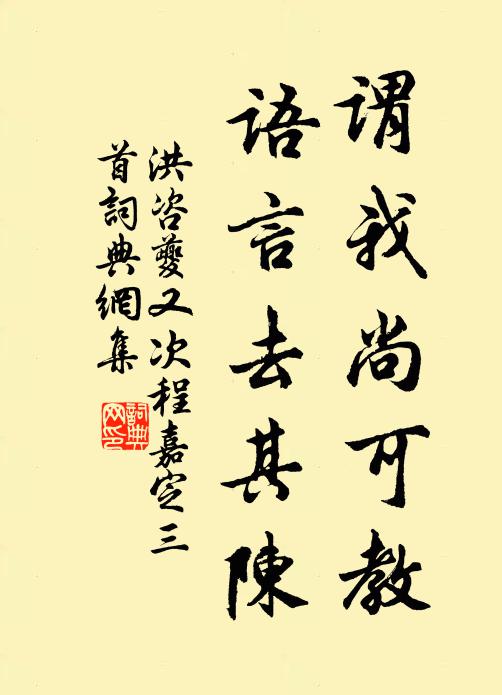 謂我尚可教
語言去其陳
洪咨夔又次程嘉定三
首詞典網集
詞典
网印